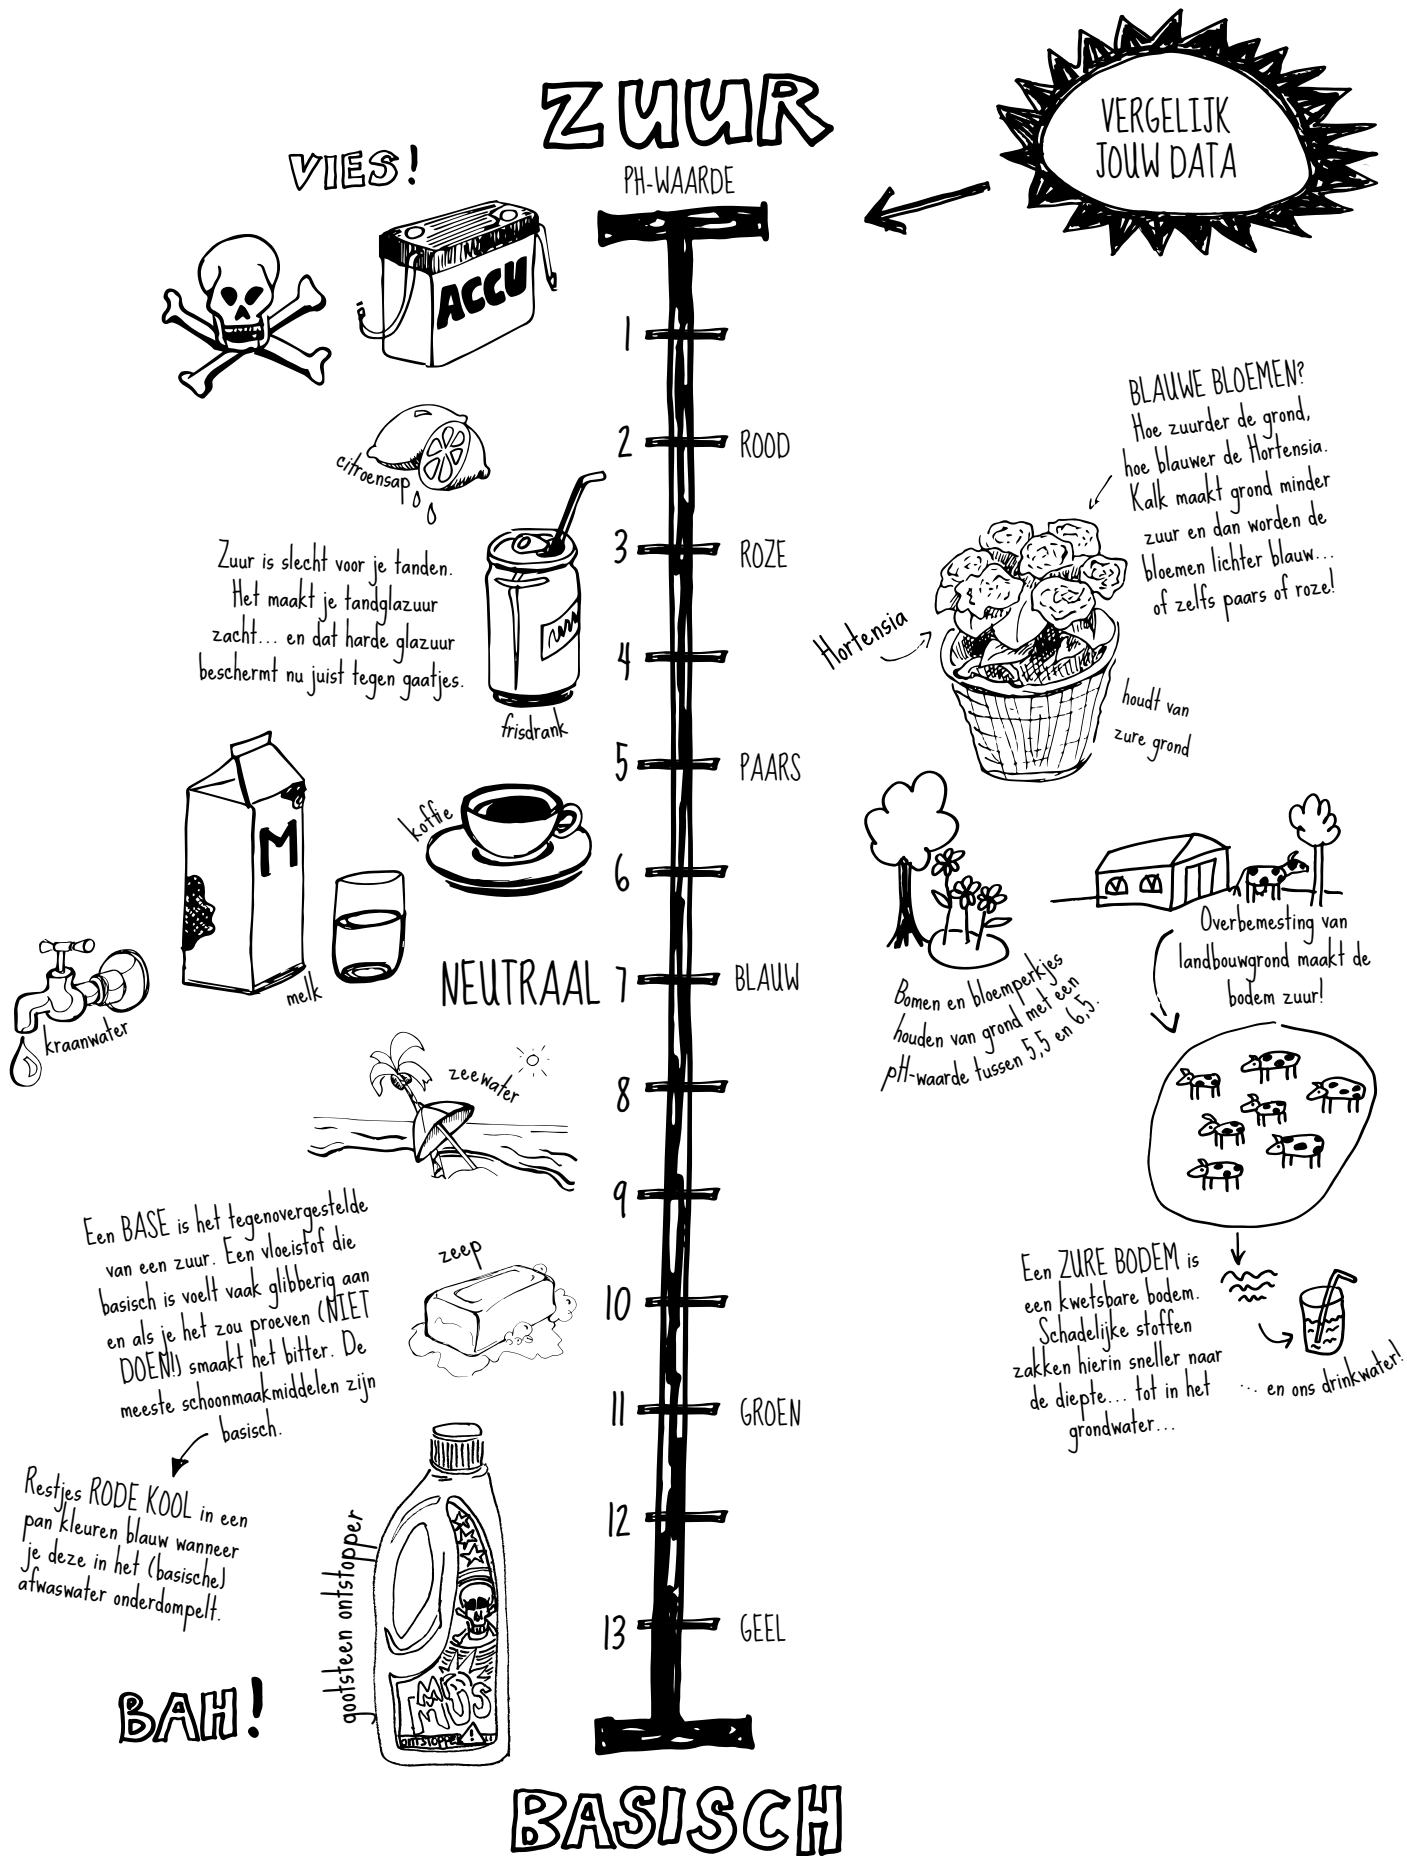 ZUUR
PH-WAARDE
VERGELIJK
JOUW DATA
VIES!
ACCU
1
2 ROOD
citroensap
3 ROZE
4
5 PAARS
6
NEUTRAAL 7 BLAUW
8
9
10
11 GROEN
12
13 GEEL
Zuur is slecht voor je tanden.
Het maakt je tandglazuur
zacht... en dat harde glazuur
beschermt nu juist tegen gaatjes.
frisdrank
koffie
M
melk
kraanwater
zeewater
Een BASE is het tegenovergestelde
van een zuur. Een vloeistof die
basisch is voelt vaak glibberig aan
en als je het zou proeven (NIET
DOEN!) smaakt het bitter. De
meeste schoonmaakmiddelen zijn
basisch.
zeep
Restjes RODE KOOL in een
pan kleuren blauw wanneer
je deze in het (basische)
afwaswater onderdompelt.
gootsteen ontstopper
MR
MUS
ONTSTOPPER
!
BAH!
BASISCH
BLAUWE BLOEMEN?
Hoe zuurder de grond,
hoe blauwer de Hortensia.
Kalk maakt grond minder
zuur en dan worden de
bloemen lichter blauw...
of zelfs paars of roze!
Hortensia
houdt van
zure grond
Bomen en bloemperkjes
houden van grond met een
pH-waarde tussen 5,5 en 6,5.
Overbemesting van
landbouwgrond maakt de
bodem zuur!
Een ZURE BODEM is
een kwetsbare bodem.
Schadelijke stoffen
zakken hierin sneller naar
de diepte... tot in het
grondwater...
... en ons drinkwater!